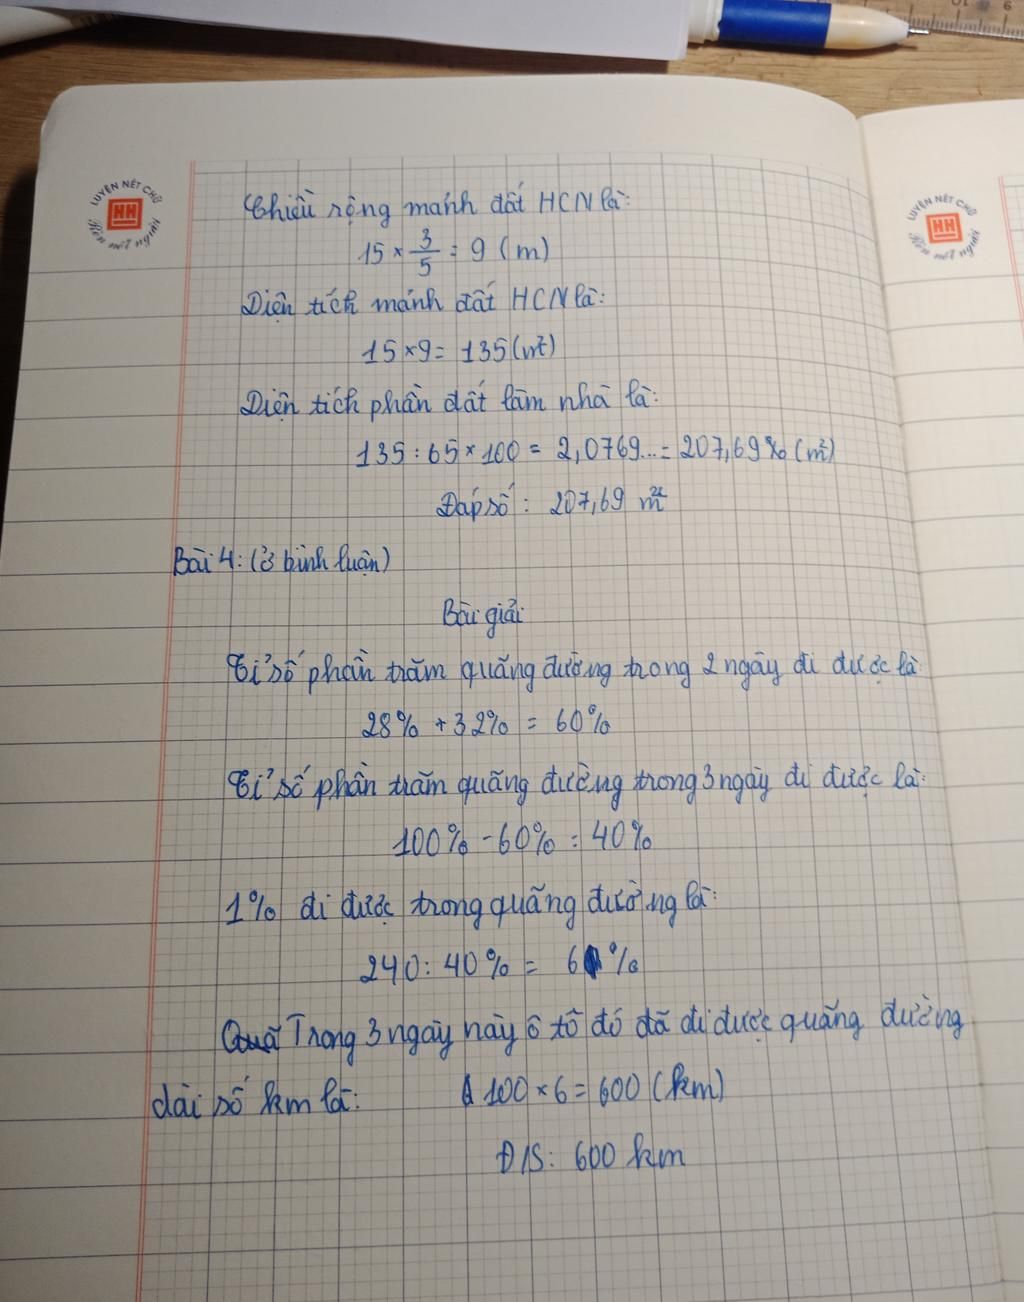 LUYỆN NÉT CHỮ
HH
Rèn nết người
LUYỆN NÉT CHỮ
HH
Rèn nết người
Chiều rộng mảnh đất HCN là:
15 × 3/5 = 9 (m)
Diện tích mảnh đất HCN là:
15 × 9 = 135 (m²)
Diện tích phần đất làm nhà là:
135 : 65 × 100 = 2,0769... = 207,69% (m²)
Đáp số : 207,69 m²
Bài 4: (ở bình luận)
Bài giải
Tỉ số phần trăm quãng đường trong 2 ngày đi được là:
28% + 32% = 60%
Tỉ số phần trăm quãng đường trong 3 ngày đi được là:
100% - 60% = 40%
1% đi được trong quãng đường là:
240 : 40% = 6 %
Trong 3 ngày này ô tô đó đã đi được quãng đường
dài số km là: 100 × 6 = 600 (km)
Đ/S: 600 km